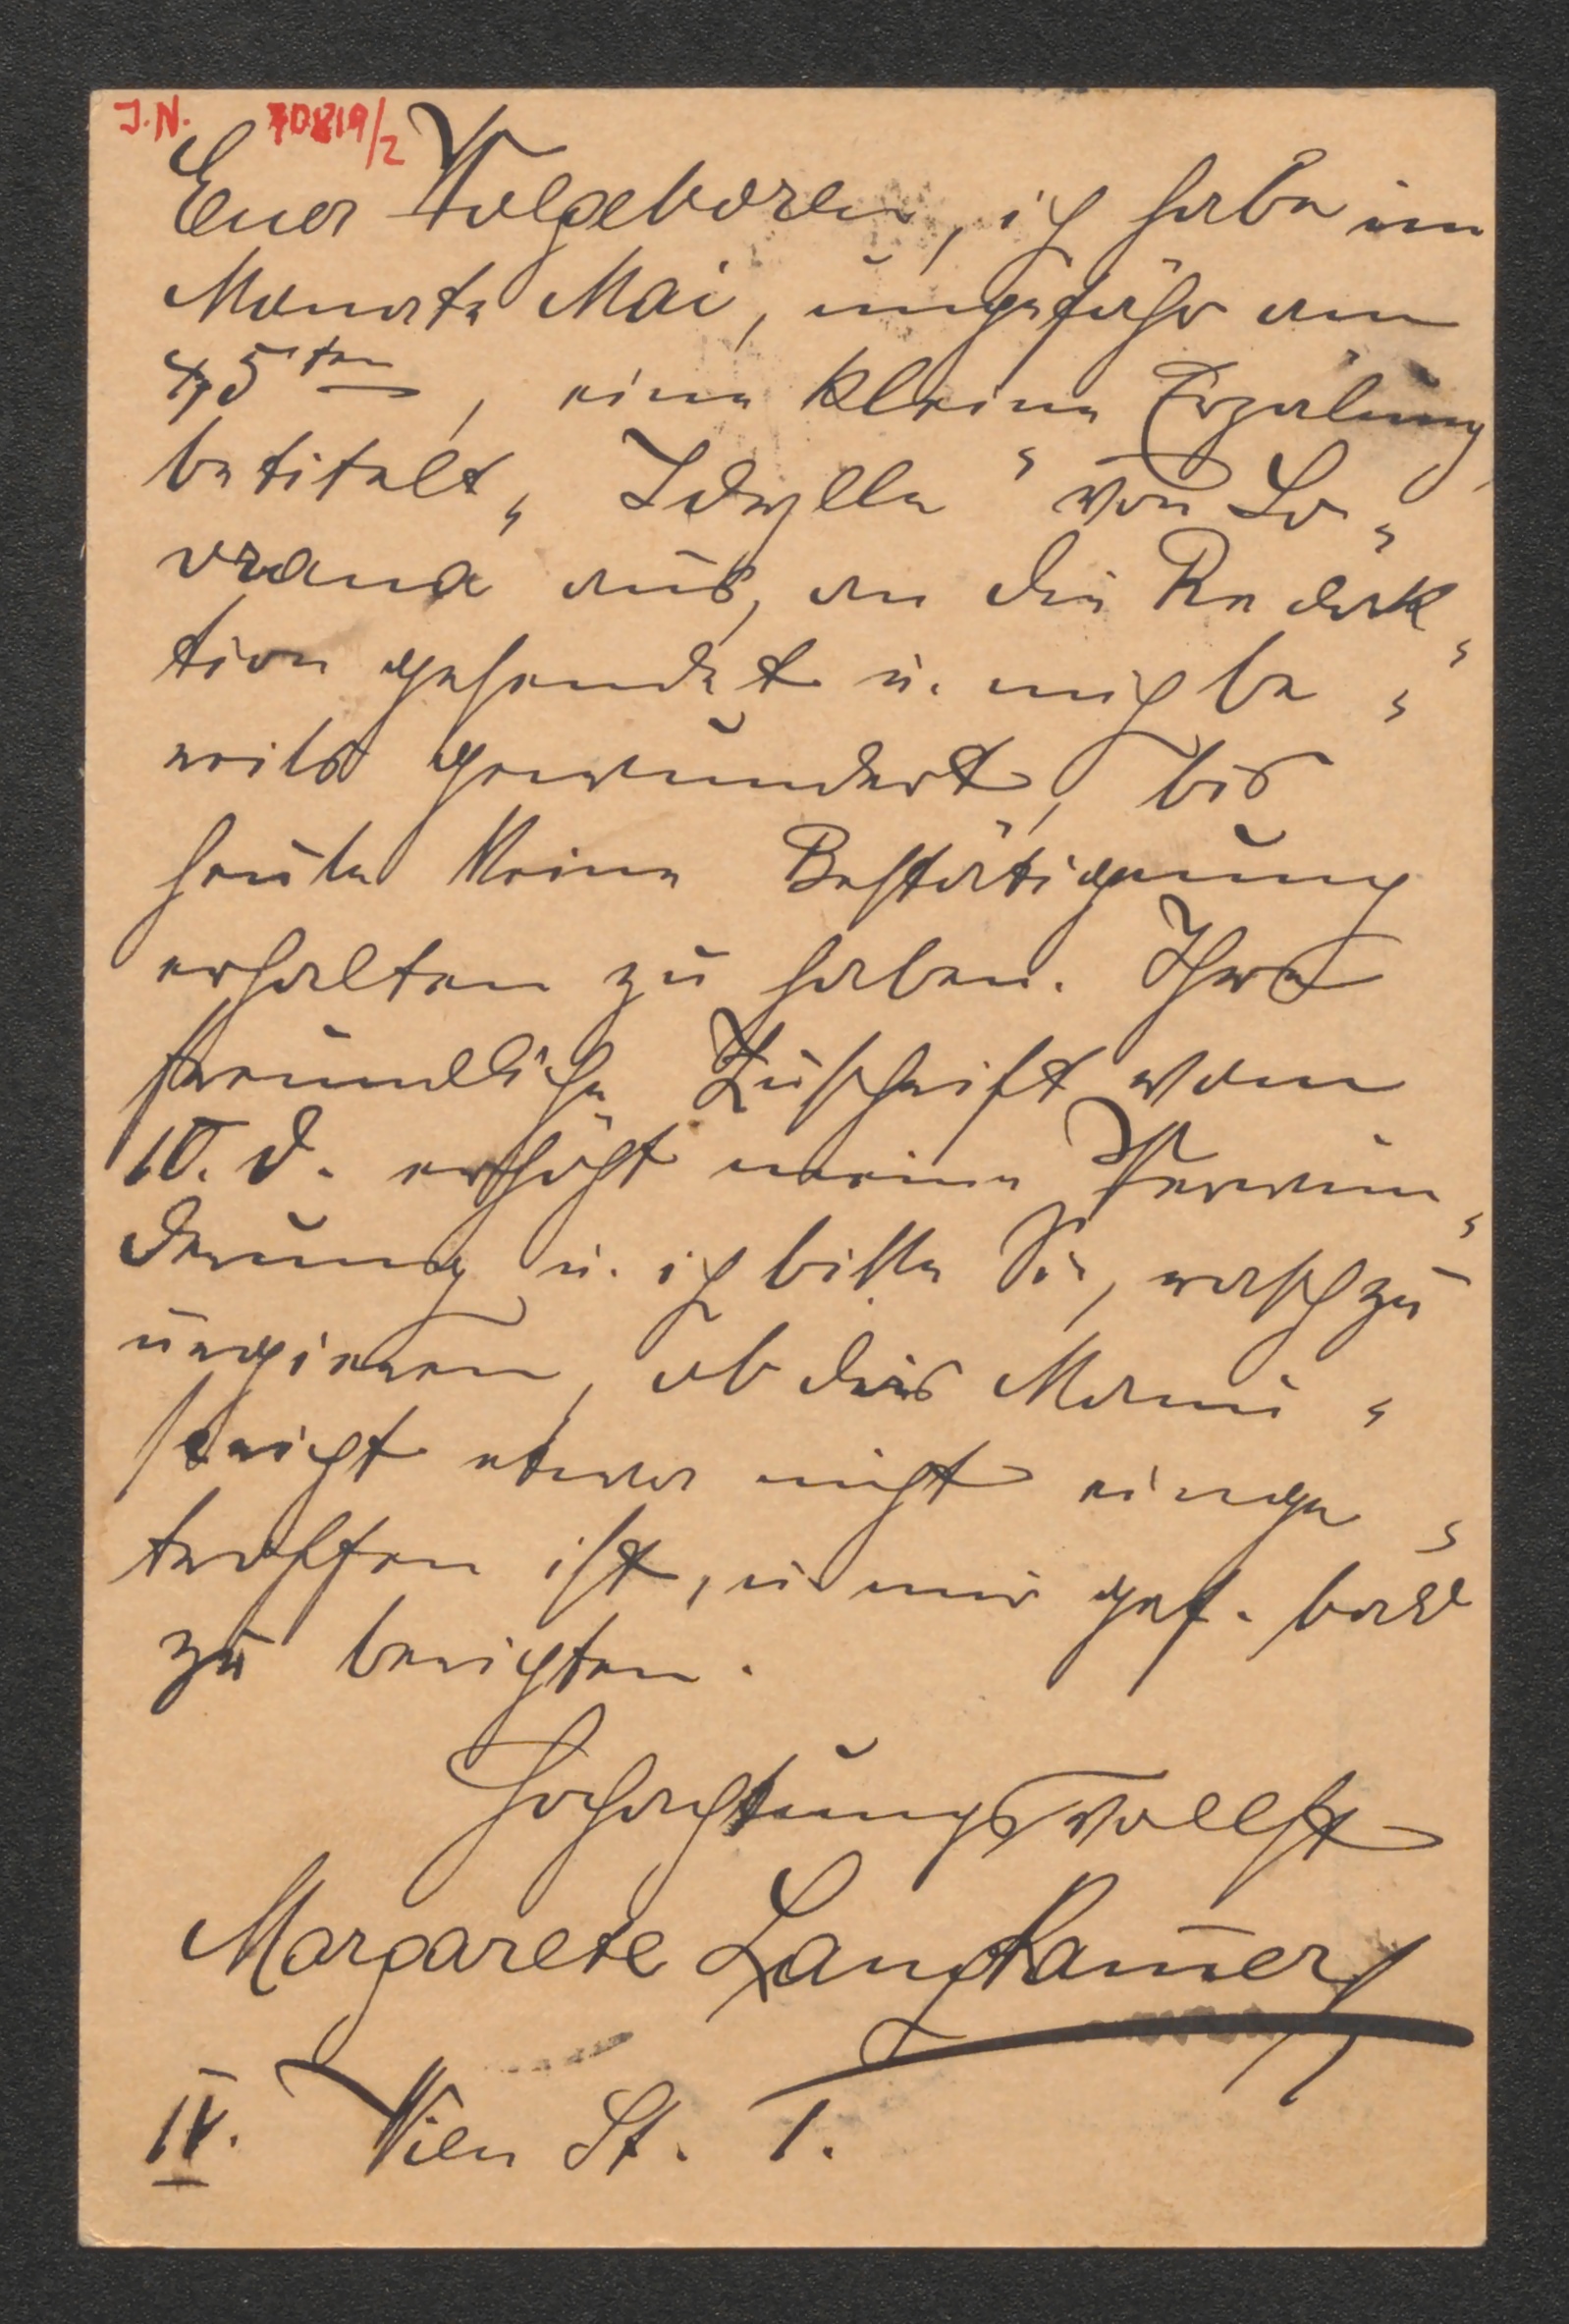 J.N. 70819/2
Euer Wolgeboren, ich habe im
Monate Mai, ungefähr am
5ten, eine kleine Erzälung
betitelt „Idylle" von Lo„
vrana aus, an die Redak„
tion gesendet u. mich be„
reits gewundert, bis
heute keine Bestätigung
erhalten zu haben. Ihre
freundliche Zuschrift vom
10. d. erhöht meine Verwun„
derung u. ich bitte Sie, rasch zu
urgieren, ob dies Manu„
skript etwa nicht einge„
troffen ist, u. mir gef. bald
zu berichten.
Hochachtungsvollst
Margarete Langkam̄er
IV. Wien St. T.